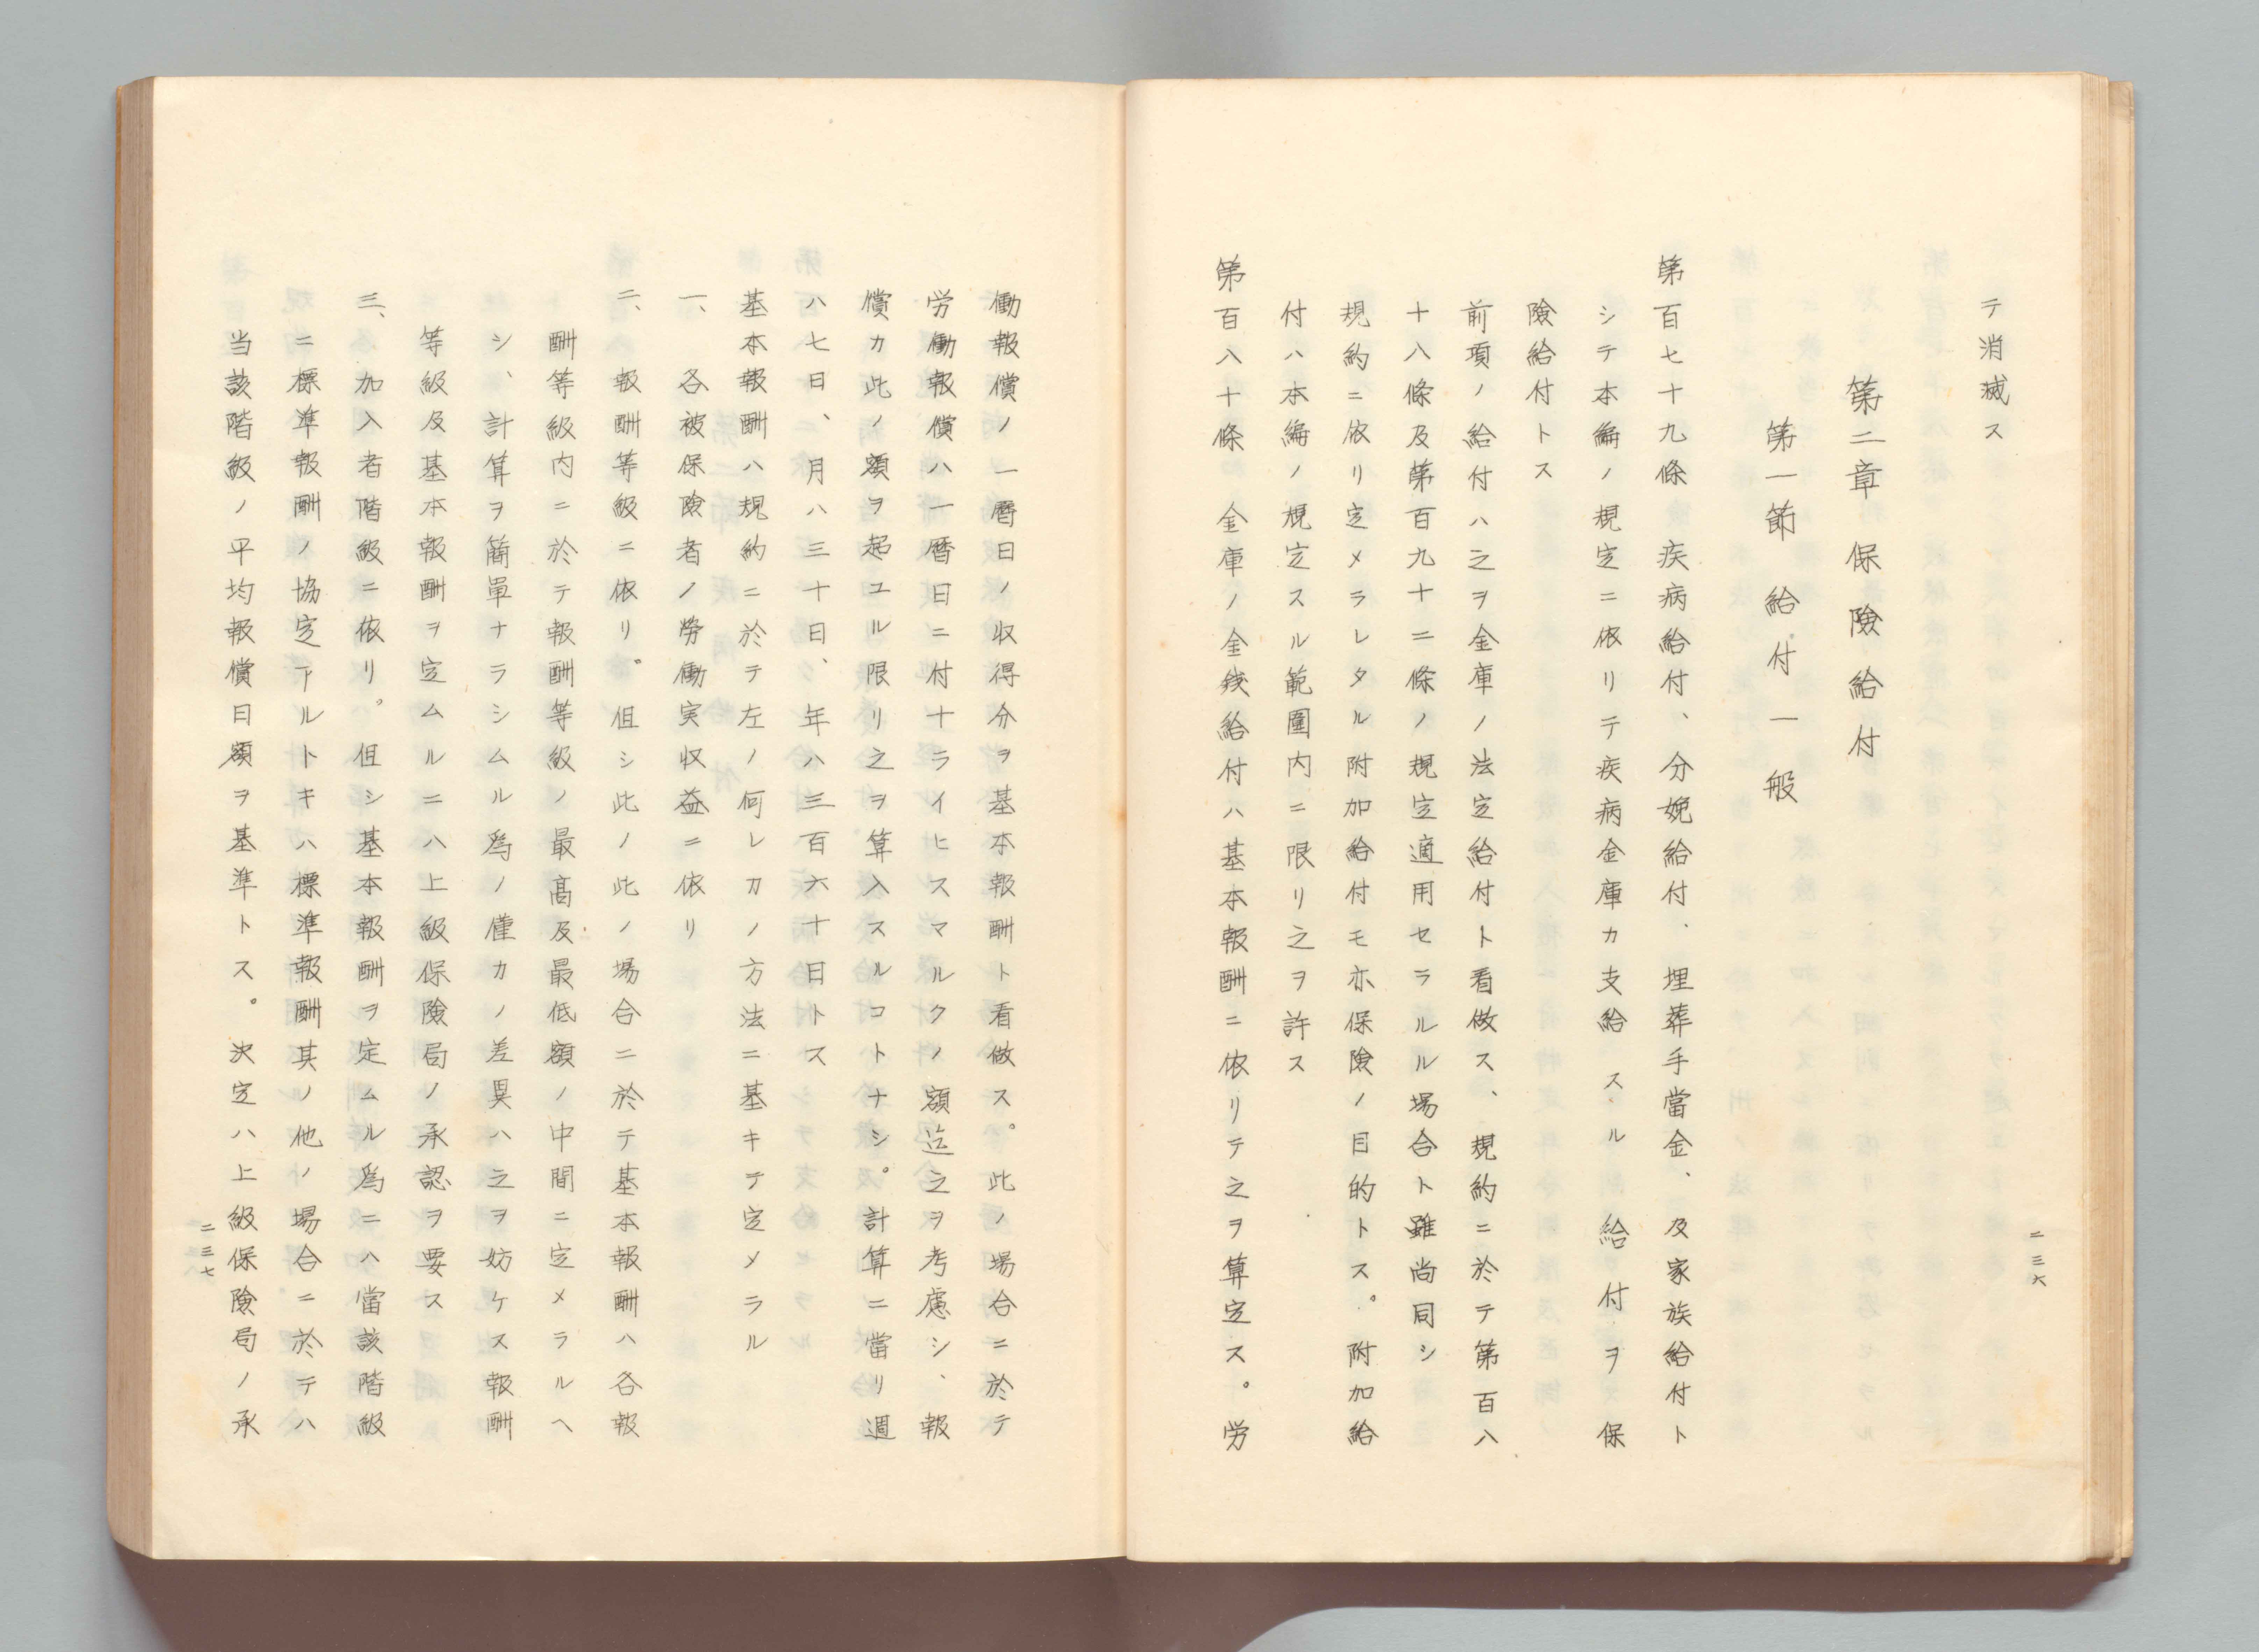 テ消滅ス
第二章 保險給付
第一節 給付一般
第百七十九條 疾病給付、分娩給付、埋葬手當金、及家族給付ト
シテ本編ノ規定ニ依リテ疾病金庫カ支給スル給付ヲ保
險給付トス
前項ノ給付ハ之ヲ金庫ノ法定給付ト看做ス、規約ニ於テ第百八
十八條及第百九十二條ノ規定適用セラルル場合ト雖尚同シ
規約ニ依リ定メラレタル附加給付モ亦保險ノ目的トス。附加給
付ハ本編ノ規定スル範圍内ニ限リ之ヲ許ス
第百八十條 金庫ノ金錢給付ハ基本報酬ニ依リテ之ヲ算定ス。労
二三六
働報償ノ一暦日ノ収得分ヲ基本報酬ト看做ス。此ノ場合ニ於テ
労働報償ハ一暦日ニ付十ライヒスマルクノ額迄之ヲ考慮シ、報
償カ此ノ額ヲ超ユル限リ之ヲ算入スルコトナシ。計算ニ當リ週
ハ七日、月ハ三十日、年ハ三百六十日トス
基本報酬ハ規約ニ於テ左ノ何レカノ方法ニ基キテ定メラル
一、各被保險者ノ勞働実収益ニ依リ
二、報酬等級ニ依リ。但シ此ノ此ノ場合ニ於テ基本報酬ハ各報
酬等級内ニ於テ報酬等級ノ最高及最低額ノ中間ニ定メラルヘ
シ、計算ヲ簡單ナラシムル爲ノ僅カノ差異ハ之ヲ妨ケス報酬
等級及基本報酬ヲ定ムルニハ上級保險局ノ承認ヲ要ス
三、加入者階級ニ依リ。但シ基本報酬ヲ定ムル爲ニハ當該階級
ニ標準報酬ノ協定アルトキハ標準報酬其ノ他ノ場合ニ於テハ
当該階級ノ平均報償日額ヲ基準トス。決定ハ上級保險局ノ承
二三七